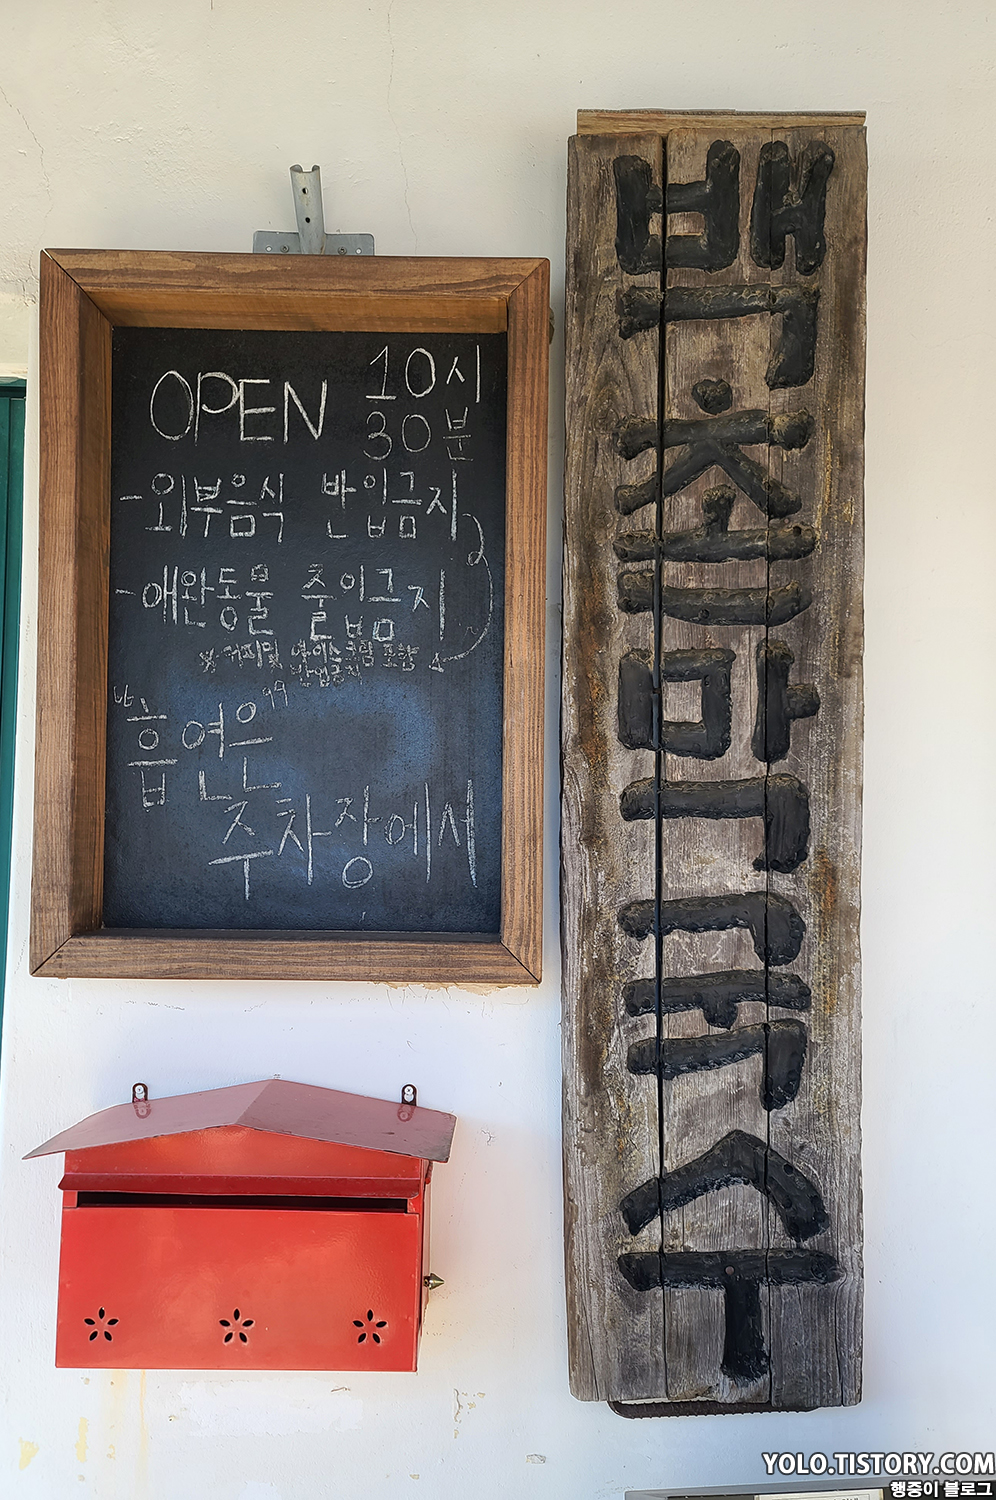 OPEN 10시
30분
-외부음식 반입금지
-애완동물 출입금지
※커피및 아이스크림 포함
반입금지
"흡연은"
주차장에서
백촌막국수
YOLO.TISTORY.COM
행중이 블로그